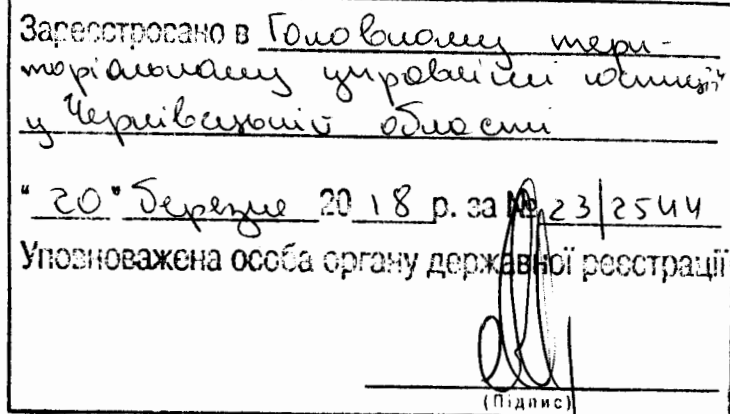 Зареєстровано в Головному тери-
торіальному управлінні юстиції
у Чернівецькій області
"20" березня 2018 р. за № 23/2544
Уповноважена особа органу державної реєстрації
(Підпис)